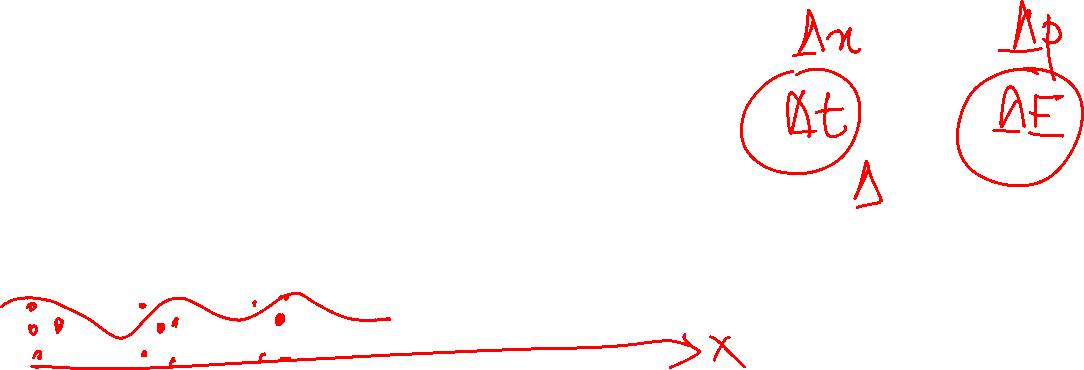 Δx Δp
Δt ΔE
Δ
X